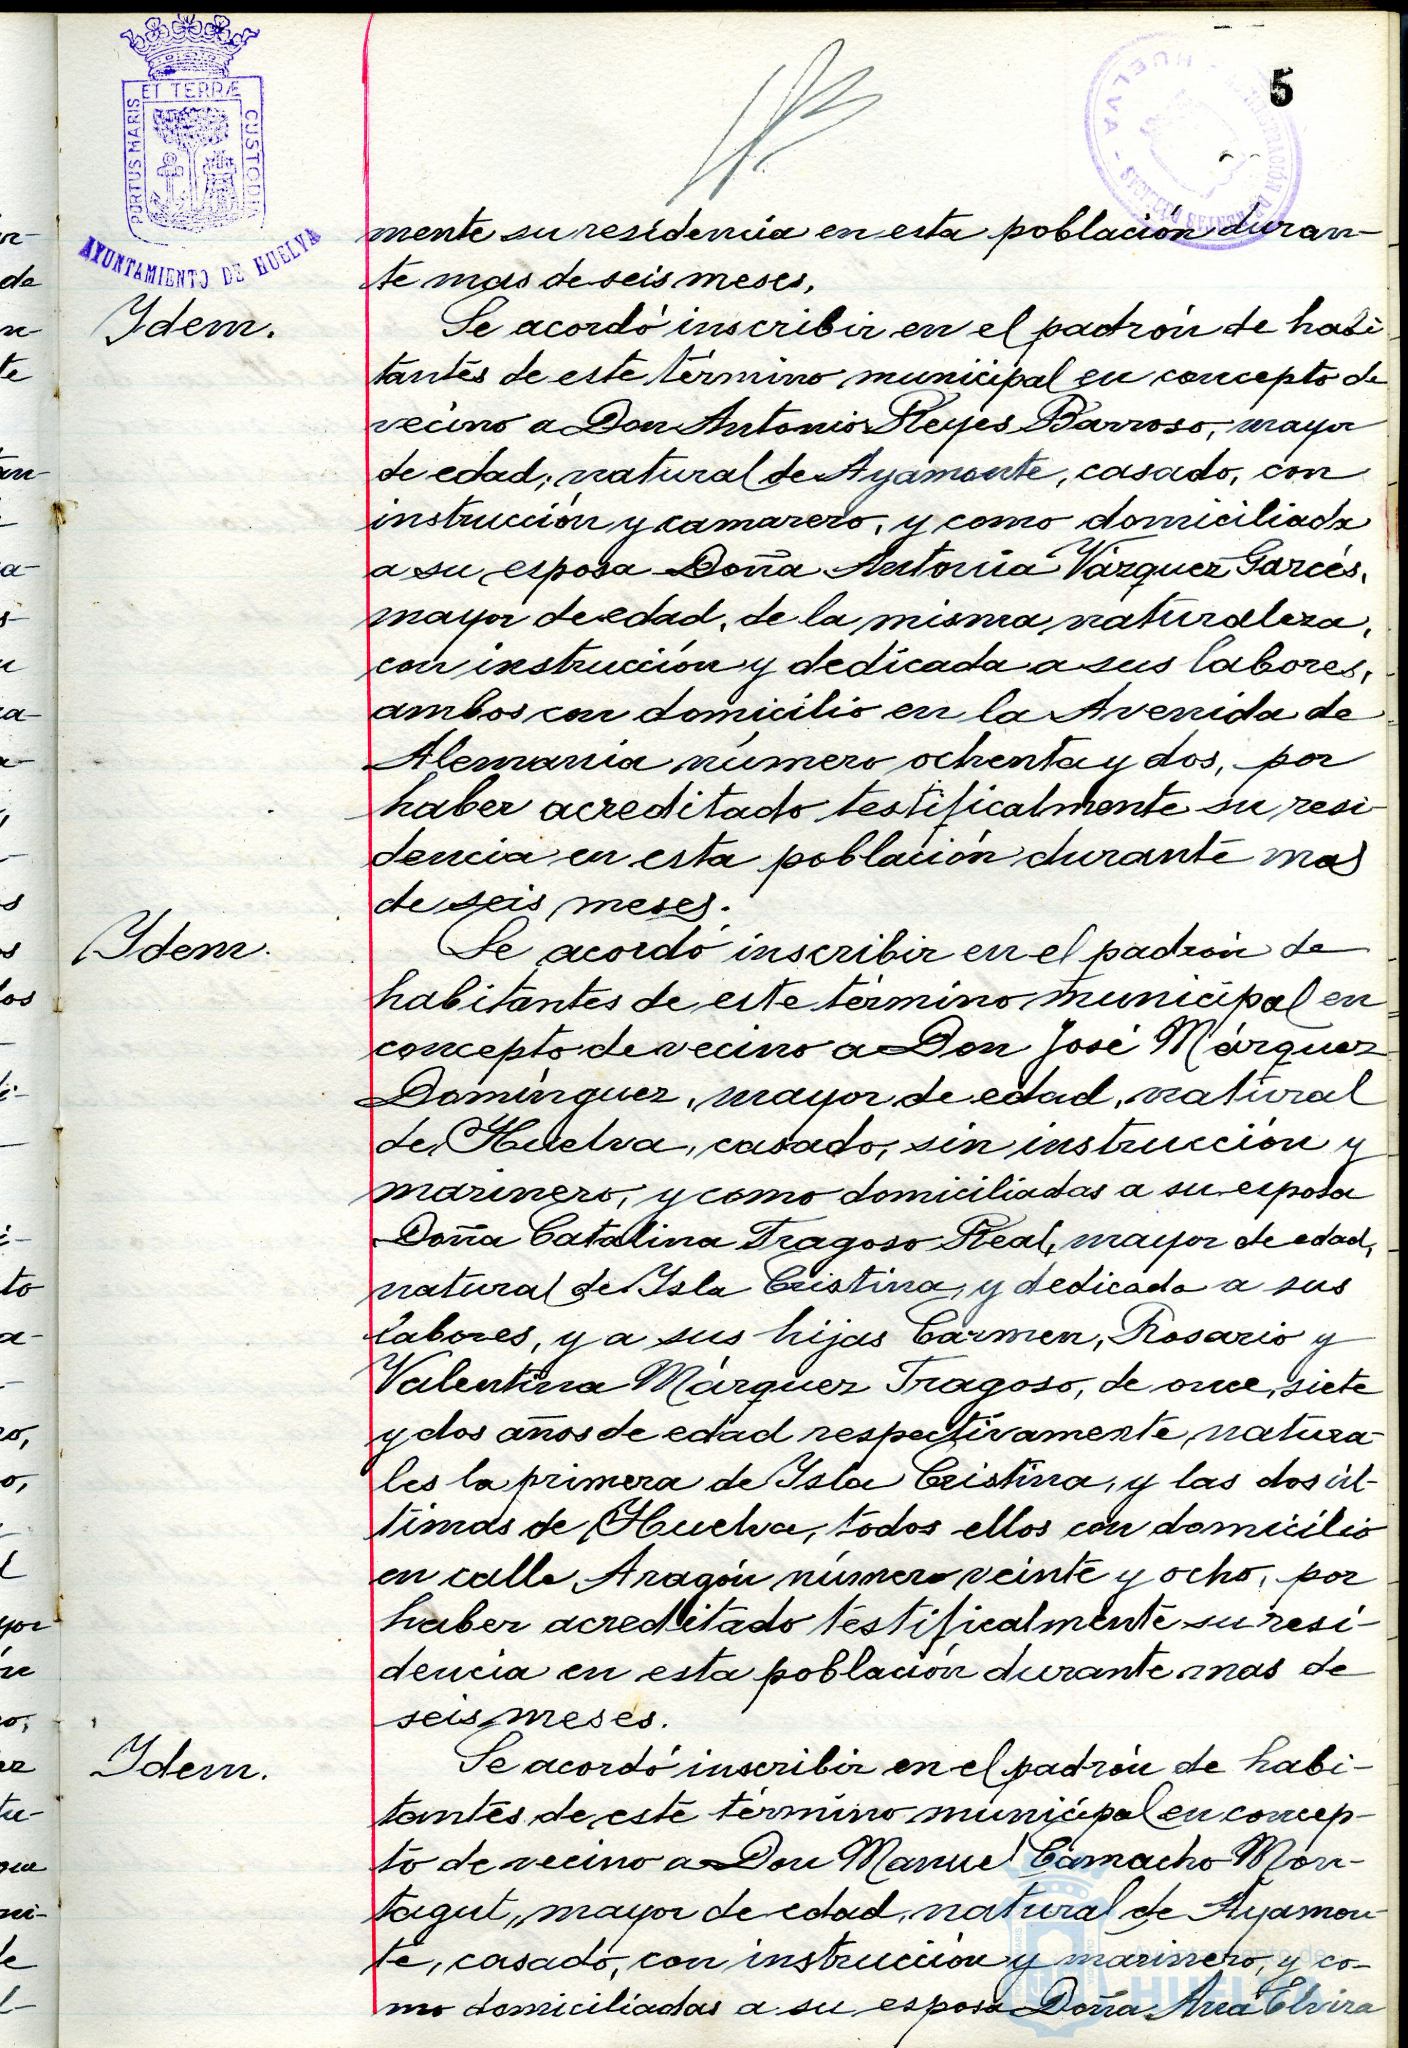 5
ET TERRÆ
PORTUS MARIS
CUSTODIA
AYUNTAMIENTO DE HUELVA
mente su residencia en esta población duran-
te mas de seis meses.
Ydem.
Se acordó inscribir en el padrón de habi
tantes de este término municipal en concepto de
vecino a Don Antonio Reyes Barroso, mayor
de edad, natural de Ayamonte, casado, con
instrucción y camarero, y como domiciliada
a su esposa Doña Antonia Vázquez Garcés,
mayor de edad, de la misma naturaleza,
con instrucción y dedicada a sus labores,
ambos con domicilio en la Avenida de
Alemania número ochenta y dos, por
haber acreditado testificalmente su resi-
dencia en esta población durante mas
de seis meses.
Ydem.
Se acordó inscribir en el padrón de
habitantes de este término municipal en
concepto de vecino a Don José Márquez
Domínguez, mayor de edad, natural
de Huelva, casado, sin instrucción y
marinero, y como domiciliadas a su esposa
Doña Catalina Fragoso Real, mayor de edad,
natural de Isla Cristina, y dedicada a sus
labores, y a sus hijas Carmen, Rosario y
Valentina Márquez Fragoso, de once, siete
y dos años de edad respectivamente, natura
les la primera de Isla Cristina, y las dos úl-
timas de Huelva, todos ellos con domicilio
en calle Aragón número veinte y ocho, por
haber acreditado testificalmente su resi-
dencia en esta población durante mas de
seis meses.
Ydem.
Se acordó inscribir en el padrón de habi-
tantes de este término municipal en concep-
to de vecino a Don Manuel Camacho Mon-
tagut, mayor de edad, natural de Ayamon
te, casado, con instrucción y marinero, y co-
mo domiciliadas a su esposa Doña Ana Elvira